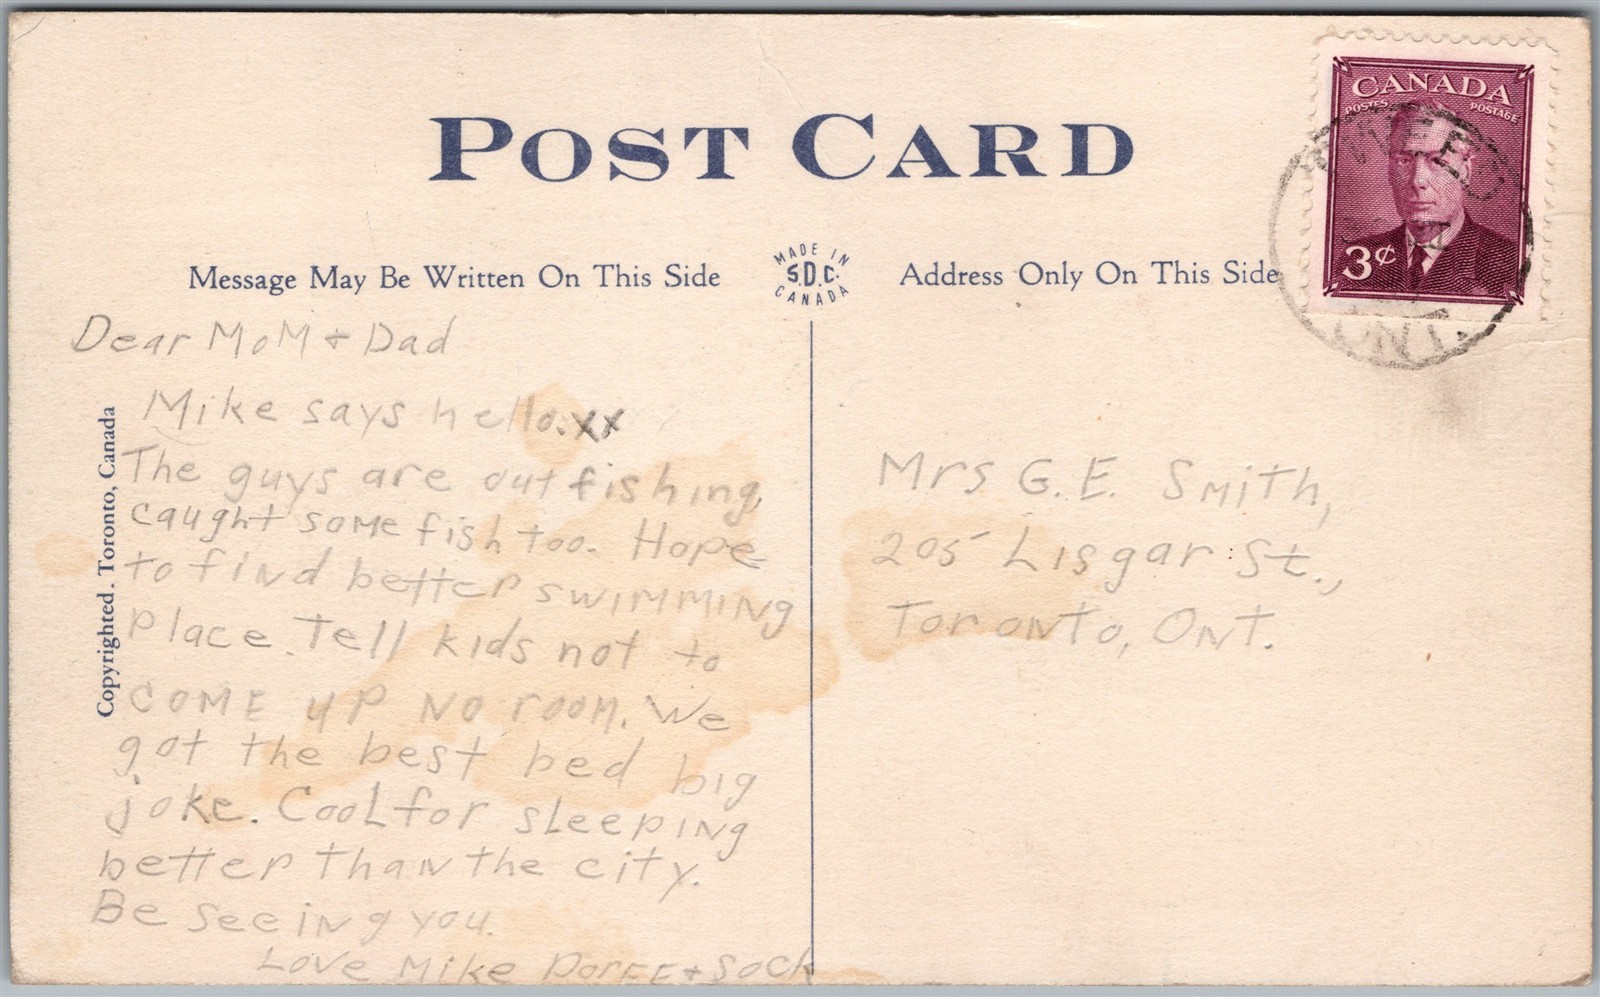 POST CARD
Message May Be Written On This Side
MADE IN
S.D.C.
CANADA
Address Only On This Side
CANADA
POSTES POSTAGE
3¢
TWEED
ONT.
Copyrighted. Toronto, Canada
Dear MoM + Dad
Mike says hello. xx
The guys are out fishing,
caught some fish too. Hope
to find better swimming
place. Tell kids not to
come up no room. We
got the best bed big
joke. Cool for sleeping
better than the city.
Be seeing you.
Love Mike + Sock
Mrs G. E. Smith,
205 Lisgar St.,
Toronto, Ont.